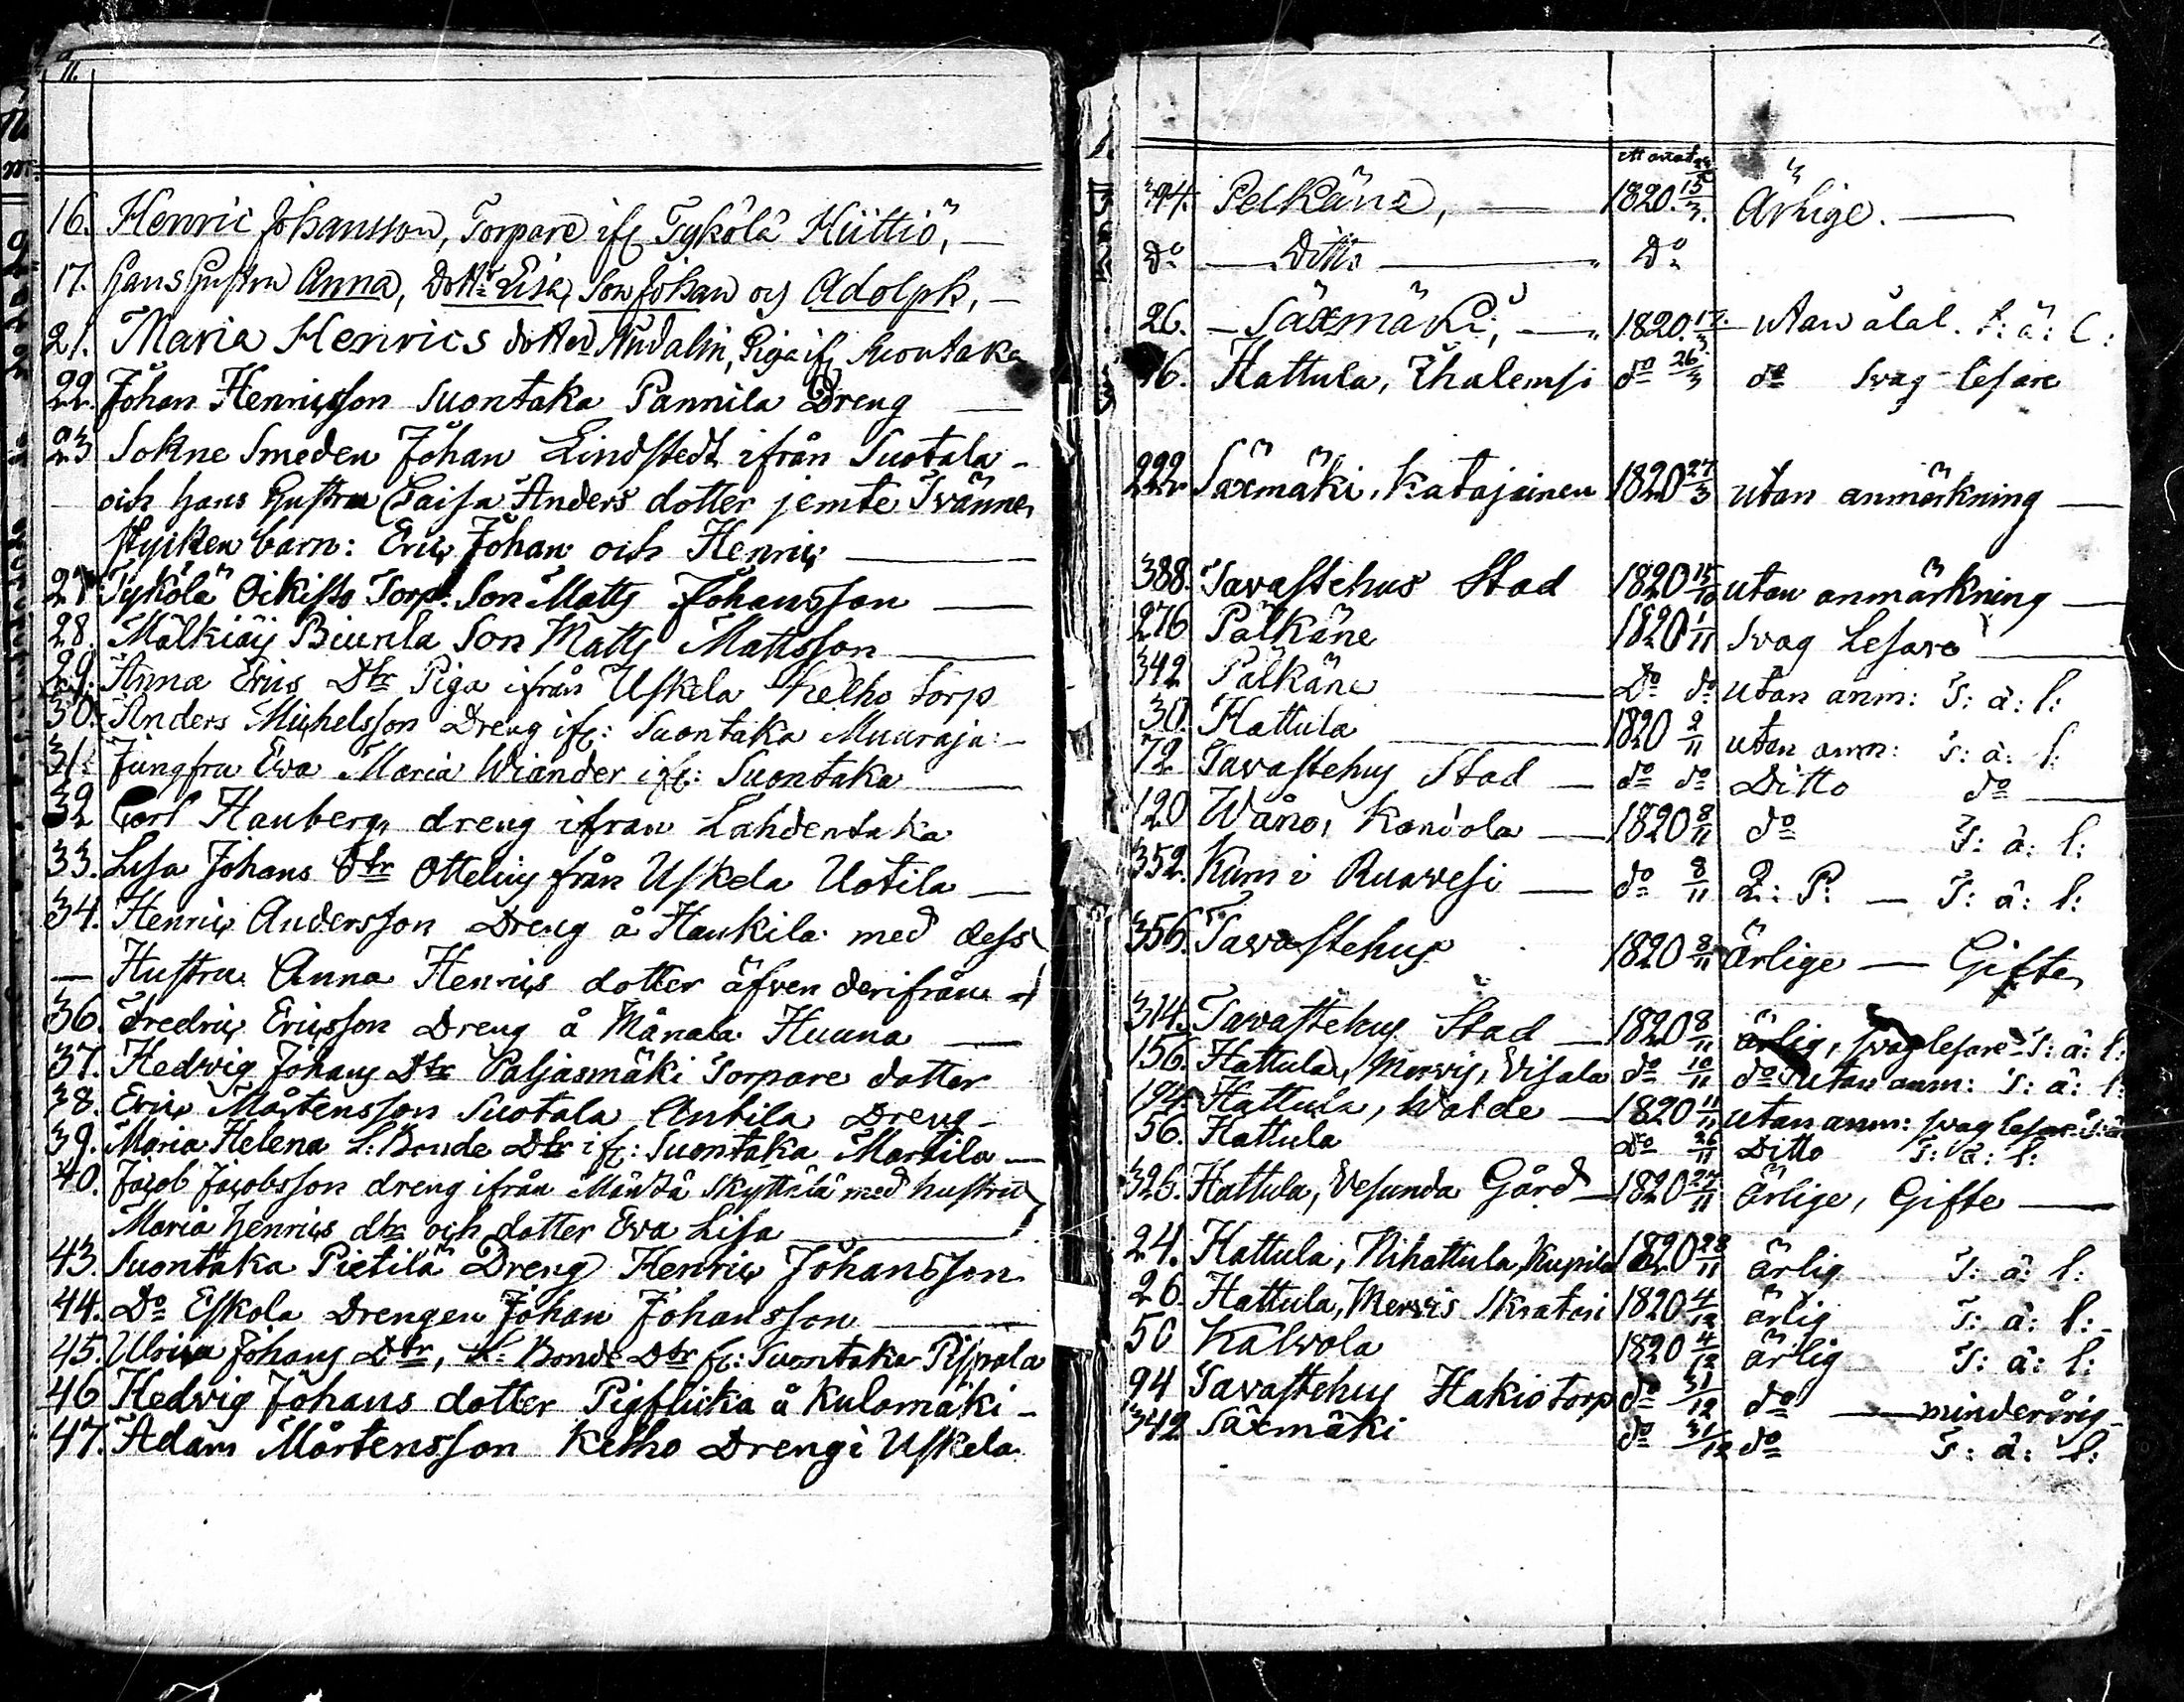 16. Henric Johansson, Torpare ifr Tykölä Hüttiö,
17. hans hustru Anna, Dottr Lisa, Son Johan och Adolph,
21. Maria Henrics dotter Nudalin, Piga ifr Suontaka
22. Johan Henricsson Suontaka Pannila Dreng
23 Sokne Smeden Johan Lindstedt ifrån Suotala
och hans hustru Caisa Anders dotter jemte Tvänne
stycken barn: Eric Johan och Henric
27 Tykölä Oikisto Torp: Son Matts Johansson
28. Mälkiäis Biurila Son Matts Mattsson
29. Anna Erics Dtr Piga ifrån Uskela Kelho torp
30. Anders Michelsson Dreng ifr: Suontaka Muuraja:
31. Jungfru Ewa Maria Wiander ifr: Suontaka
32 Carl Hauberg, dreng ifran Lahdentaka
33. Lisa Johans Dtr Ottelius från Uskela Uotila
34. Henric Andersson Dreng å Haukila med dess
Hustru Anna Henrics dotter äfven derifrån
36. Fredric Ericsson Dreng å Månala Huuna
37. Hedvig Johans Dtr Paljasmäki Torpare dotter
38. Eric Mårtensson Suotala Antila Dreng
39. Maria Helena L: Bonde Dtr ifr: Suontaka Martila
40. Jacob Jacobsson dreng ifrån Mäntä Skyttälä med hustru
Maria henrics dtr och dotter Eva Lisa
43. Suontaka Pietilä Dreng Henric Johansson
44. Do Eskola Drengen Johan Johansson
45. Ulrica Johans Dtr, L: Bonde Dtr fr: Suontaka Pispala
46 Hedvig Johans dotter Pigflicka å Kulomäki
47. Adam Mårtensson Kelho Dreng i Uskela
394. Pelkäne, 1820. 15/3. Ärlige.
Do Ditto Do
26. Säxmäki, 1820. 17/3. utan ålal. T: ä: l:
16. Hattula, Ihalemsi do 26/3 do Svag lesare
222. Säxmäki, Katajainen 1820 27/3 utan anmärkning
388. Tavastehus Stad 1820 15/10 utan anmärkning
276 Pälkäne 1820 1/11 Svag Lesare
342 Pälkäne Do do utan anm: T: ä: l:
30. Hattula 1820 2/11 utan anm: T: ä: l:
72 Tavastehus Stad do do Ditto do
120 Wåno, Kandola 1820 8/11 do T: ä: l:
352. Kum i Ruovesi do 8/11 Q: P: T: ä: l:
356. Tavastehus 1820 8/11 Ärlige Gifta
314. Tavastehus Stad 1820 8/11 ärlig, svag lesare T: ä: l:
156. Hattula, Mervis, Visala do 10/11 do utan anm: T: ä: l:
194. Hattula, Walde 1820 11/11 utan anm: svag lesare T: ä
56. Hattula Do 26/11 Ditto T: ä: l:
326. Hattula, Vesunda Gård 1820 27/11 Ärlige, Gifte
24. Hattula, Nihattula, Kupila 1820 28/11 Ärlig T: ä: l:
26. Hattula, Mervis Skratari 1820 4/12 ärlig T: ä: l:
50 Kalvola 1820 4/12 ärlig T: ä: l:
94 Tavastehus Hakio torp do 31/12 do minderårig
342 Säxmäki do 31/12 do T: ä: l: